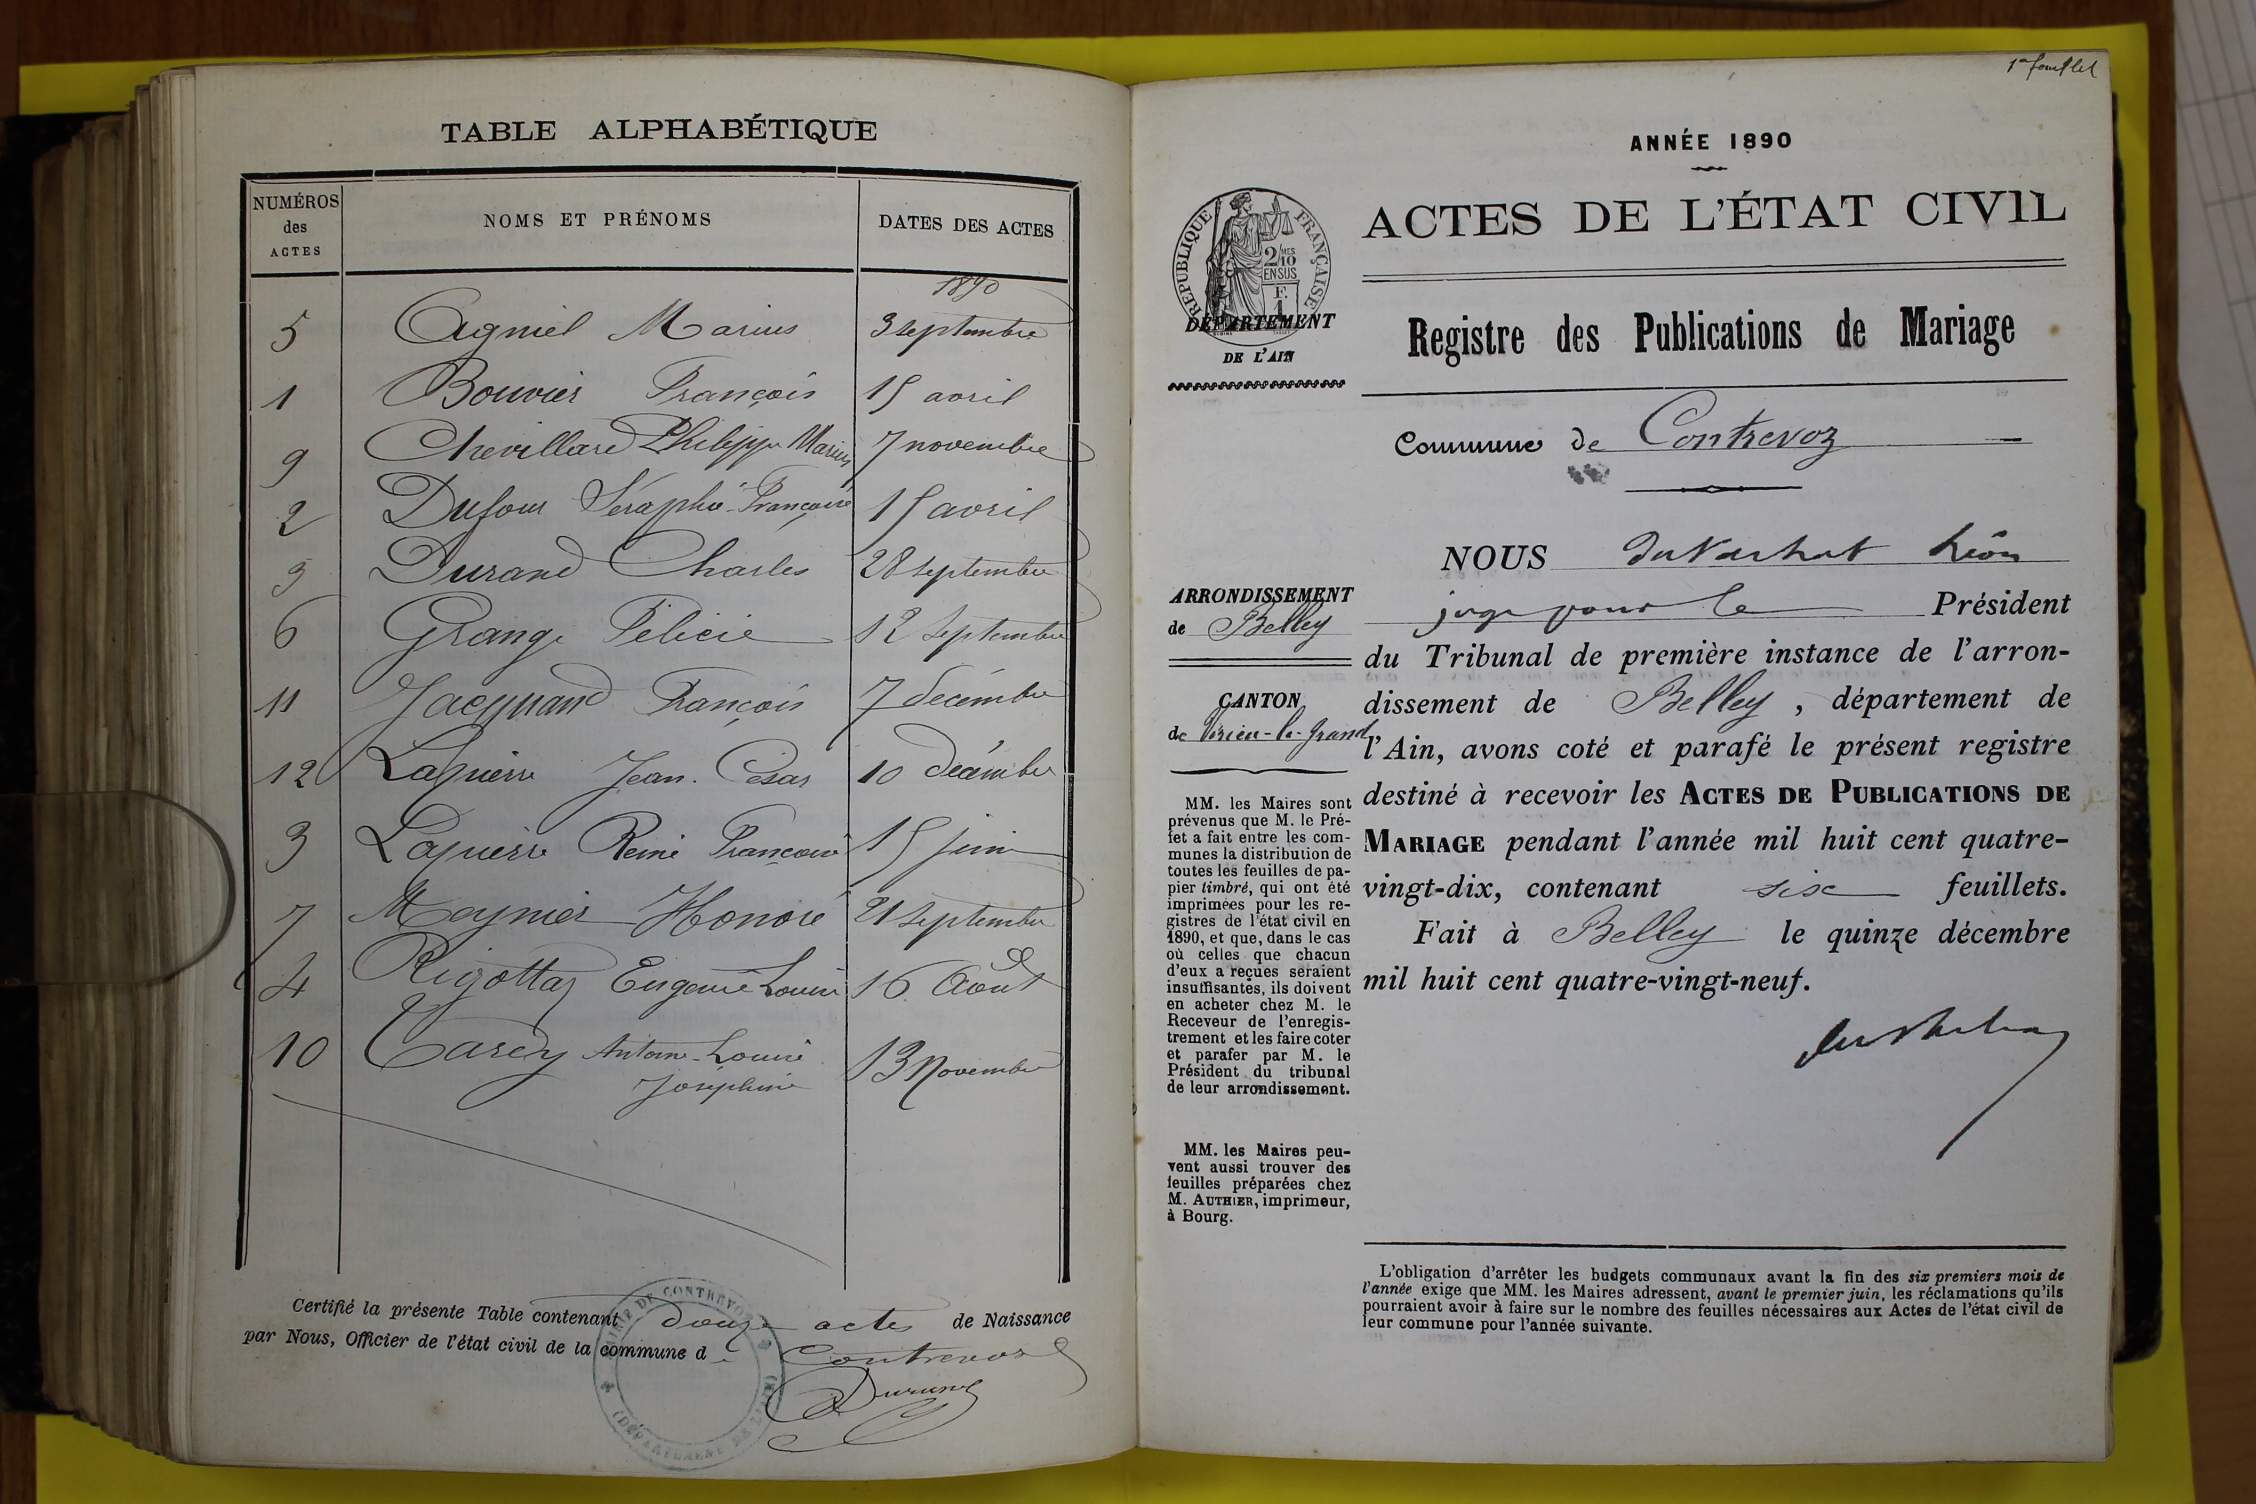 TABLE ALPHABÉTIQUE
NUMÉROS des ACTES NOMS ET PRÉNOMS DATES DES ACTES
1890
5 Agniel Marius 3 septembre
1 Bouvier François 15 avril
9 Chevillard Philippe Marius 7 novembre
2 Dufour François 15 avril
3 Durand Charles 28 septembre
6 Grange Félicie 12 septembre
11 Jacquand François 7 décembre
12 Lapierre Jean César 10 décembre
3 Lapierre René François 15 juin
7 Meynier Honoré 21 septembre
4 Rigottaz Eugenie Louise 16 Août
10 Tardy Antoine-Louise
Joséphine 13 Novembre
Certifié la présente Table contenant douze actes de Naissance
par Nous, Officier de l'état civil de la commune de Contrevoz
Durand
MAIRIE DE CONTREVOZ
(DÉPARTEMENT DE L'AIN)
1er feuillet
ANNÉE 1890
ACTES DE L'ÉTAT CIVIL
RÉPUBLIQUE FRANÇAISE
2/10MES
EN SUS
F.
1
DÉPARTEMENT
DE L'AIN
Registre des Publications de Mariage
Commune de Contrevoz
ARRONDISSEMENT
de Belley
CANTON
de Virieu-le-Grand
MM. les Maires sont
prévenus que M. le Pré-
fet a fait entre les com-
munes la distribution de
toutes les feuilles de pa-
pier timbré, qui ont été
imprimées pour les re-
gistres de l'état civil en
1890, et que, dans le cas
où celles que chacun
d'eux a reçues seraient
insuffisantes, ils doivent
en acheter chez M. le
Receveur de l'enregis-
trement et les faire coter
et parafer par M. le
Président du tribunal
de leur arrondissement.
MM. les Maires peu-
vent aussi trouver des
feuilles préparées chez
M. AUTHIER, imprimeur,
à Bourg.
NOUS Léon
juge pour le Président
du Tribunal de première instance de l'arron-
dissement de Belley, département de
l'Ain, avons coté et parafé le présent registre
destiné à recevoir les ACTES DE PUBLICATIONS DE
MARIAGE pendant l'année mil huit cent quatre-
vingt-dix, contenant six feuillets.
Fait à Belley le quinze décembre
mil huit cent quatre-vingt-neuf.
L'obligation d'arrêter les budgets communaux avant la fin des six premiers mois de
l'année exige que MM. les Maires adressent, avant le premier juin, les réclamations qu'ils
pourraient avoir à faire sur le nombre des feuilles nécessaires aux Actes de l'état civil de
leur commune pour l'année suivante.